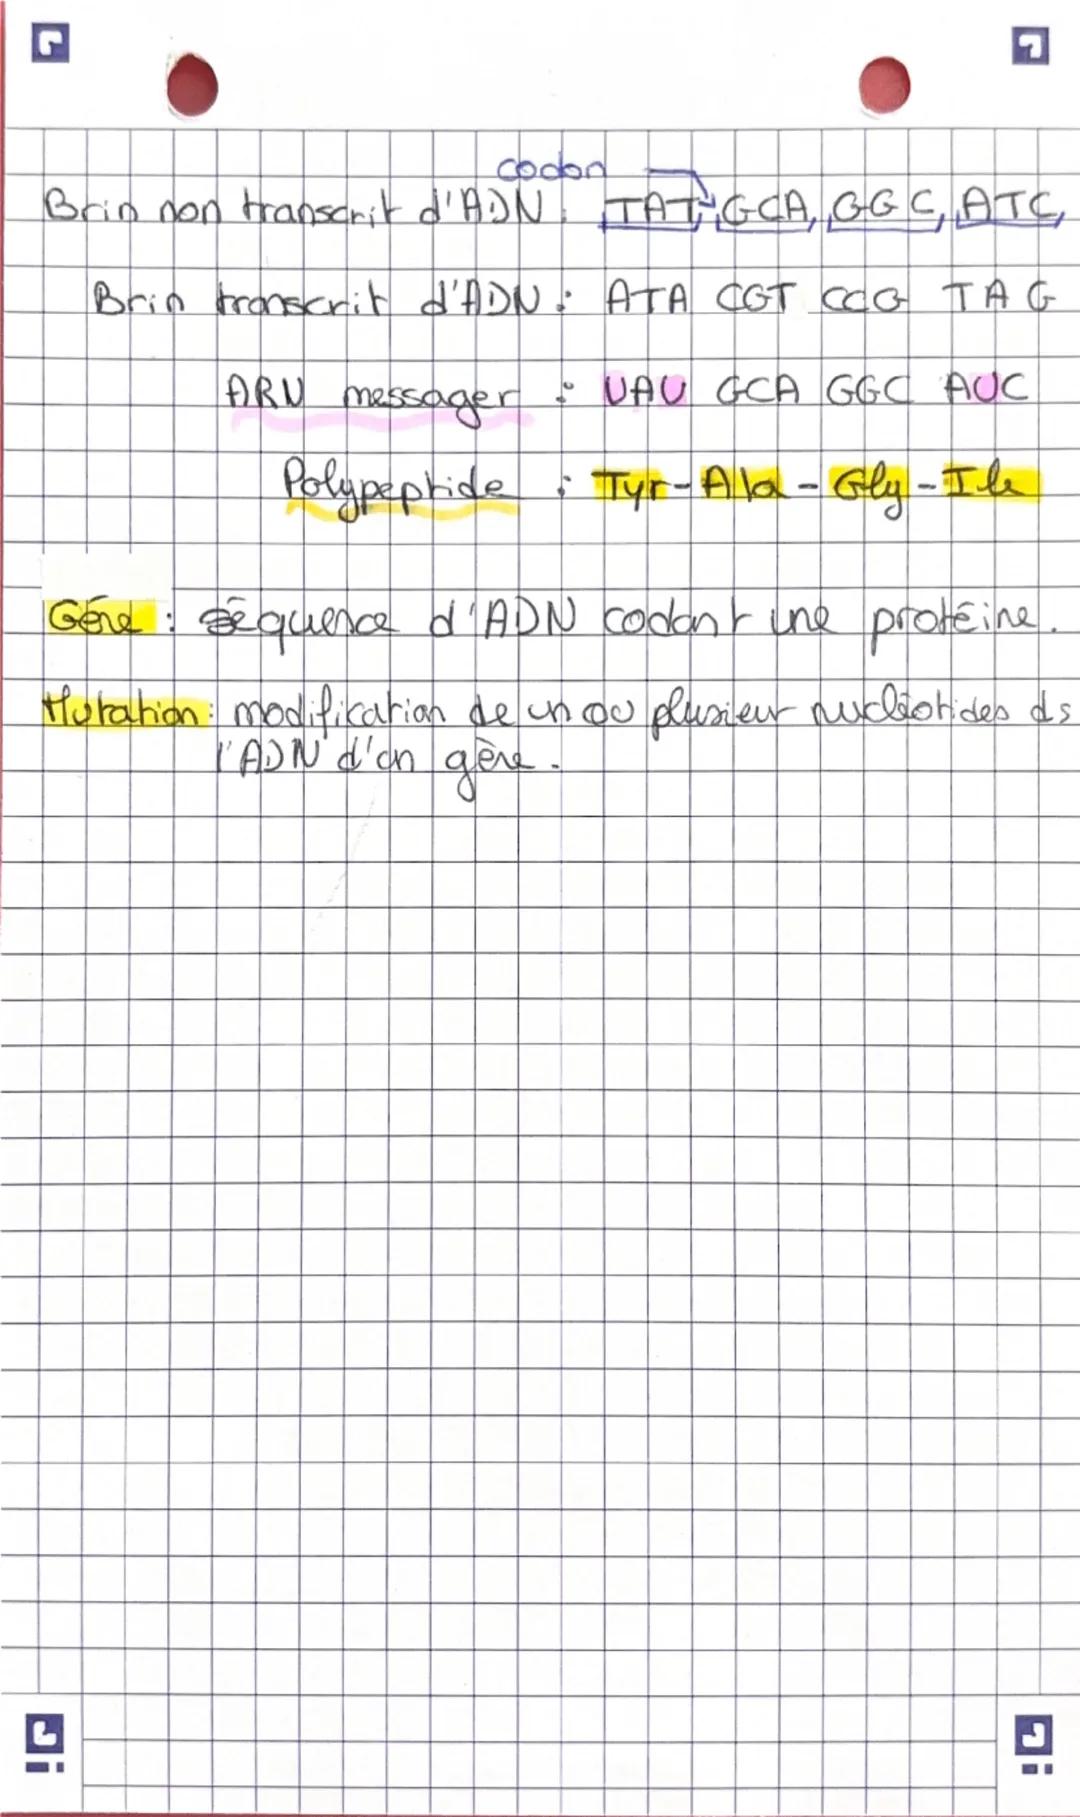 codon
Brin non transcrit d'ADN : TAT GCA GGC ATC
Brin transcrit d'ADN : ATA CGT CCG TAG
ARN messager : UAU GCA GGC AUC
Polypeptide : Tyr-Ala-Gly-Ile
Gène : séquence d'ADN codant une protéine.
Mutation : modification de un ou plusieur nucléotides ds
l'ADN d'un gène.